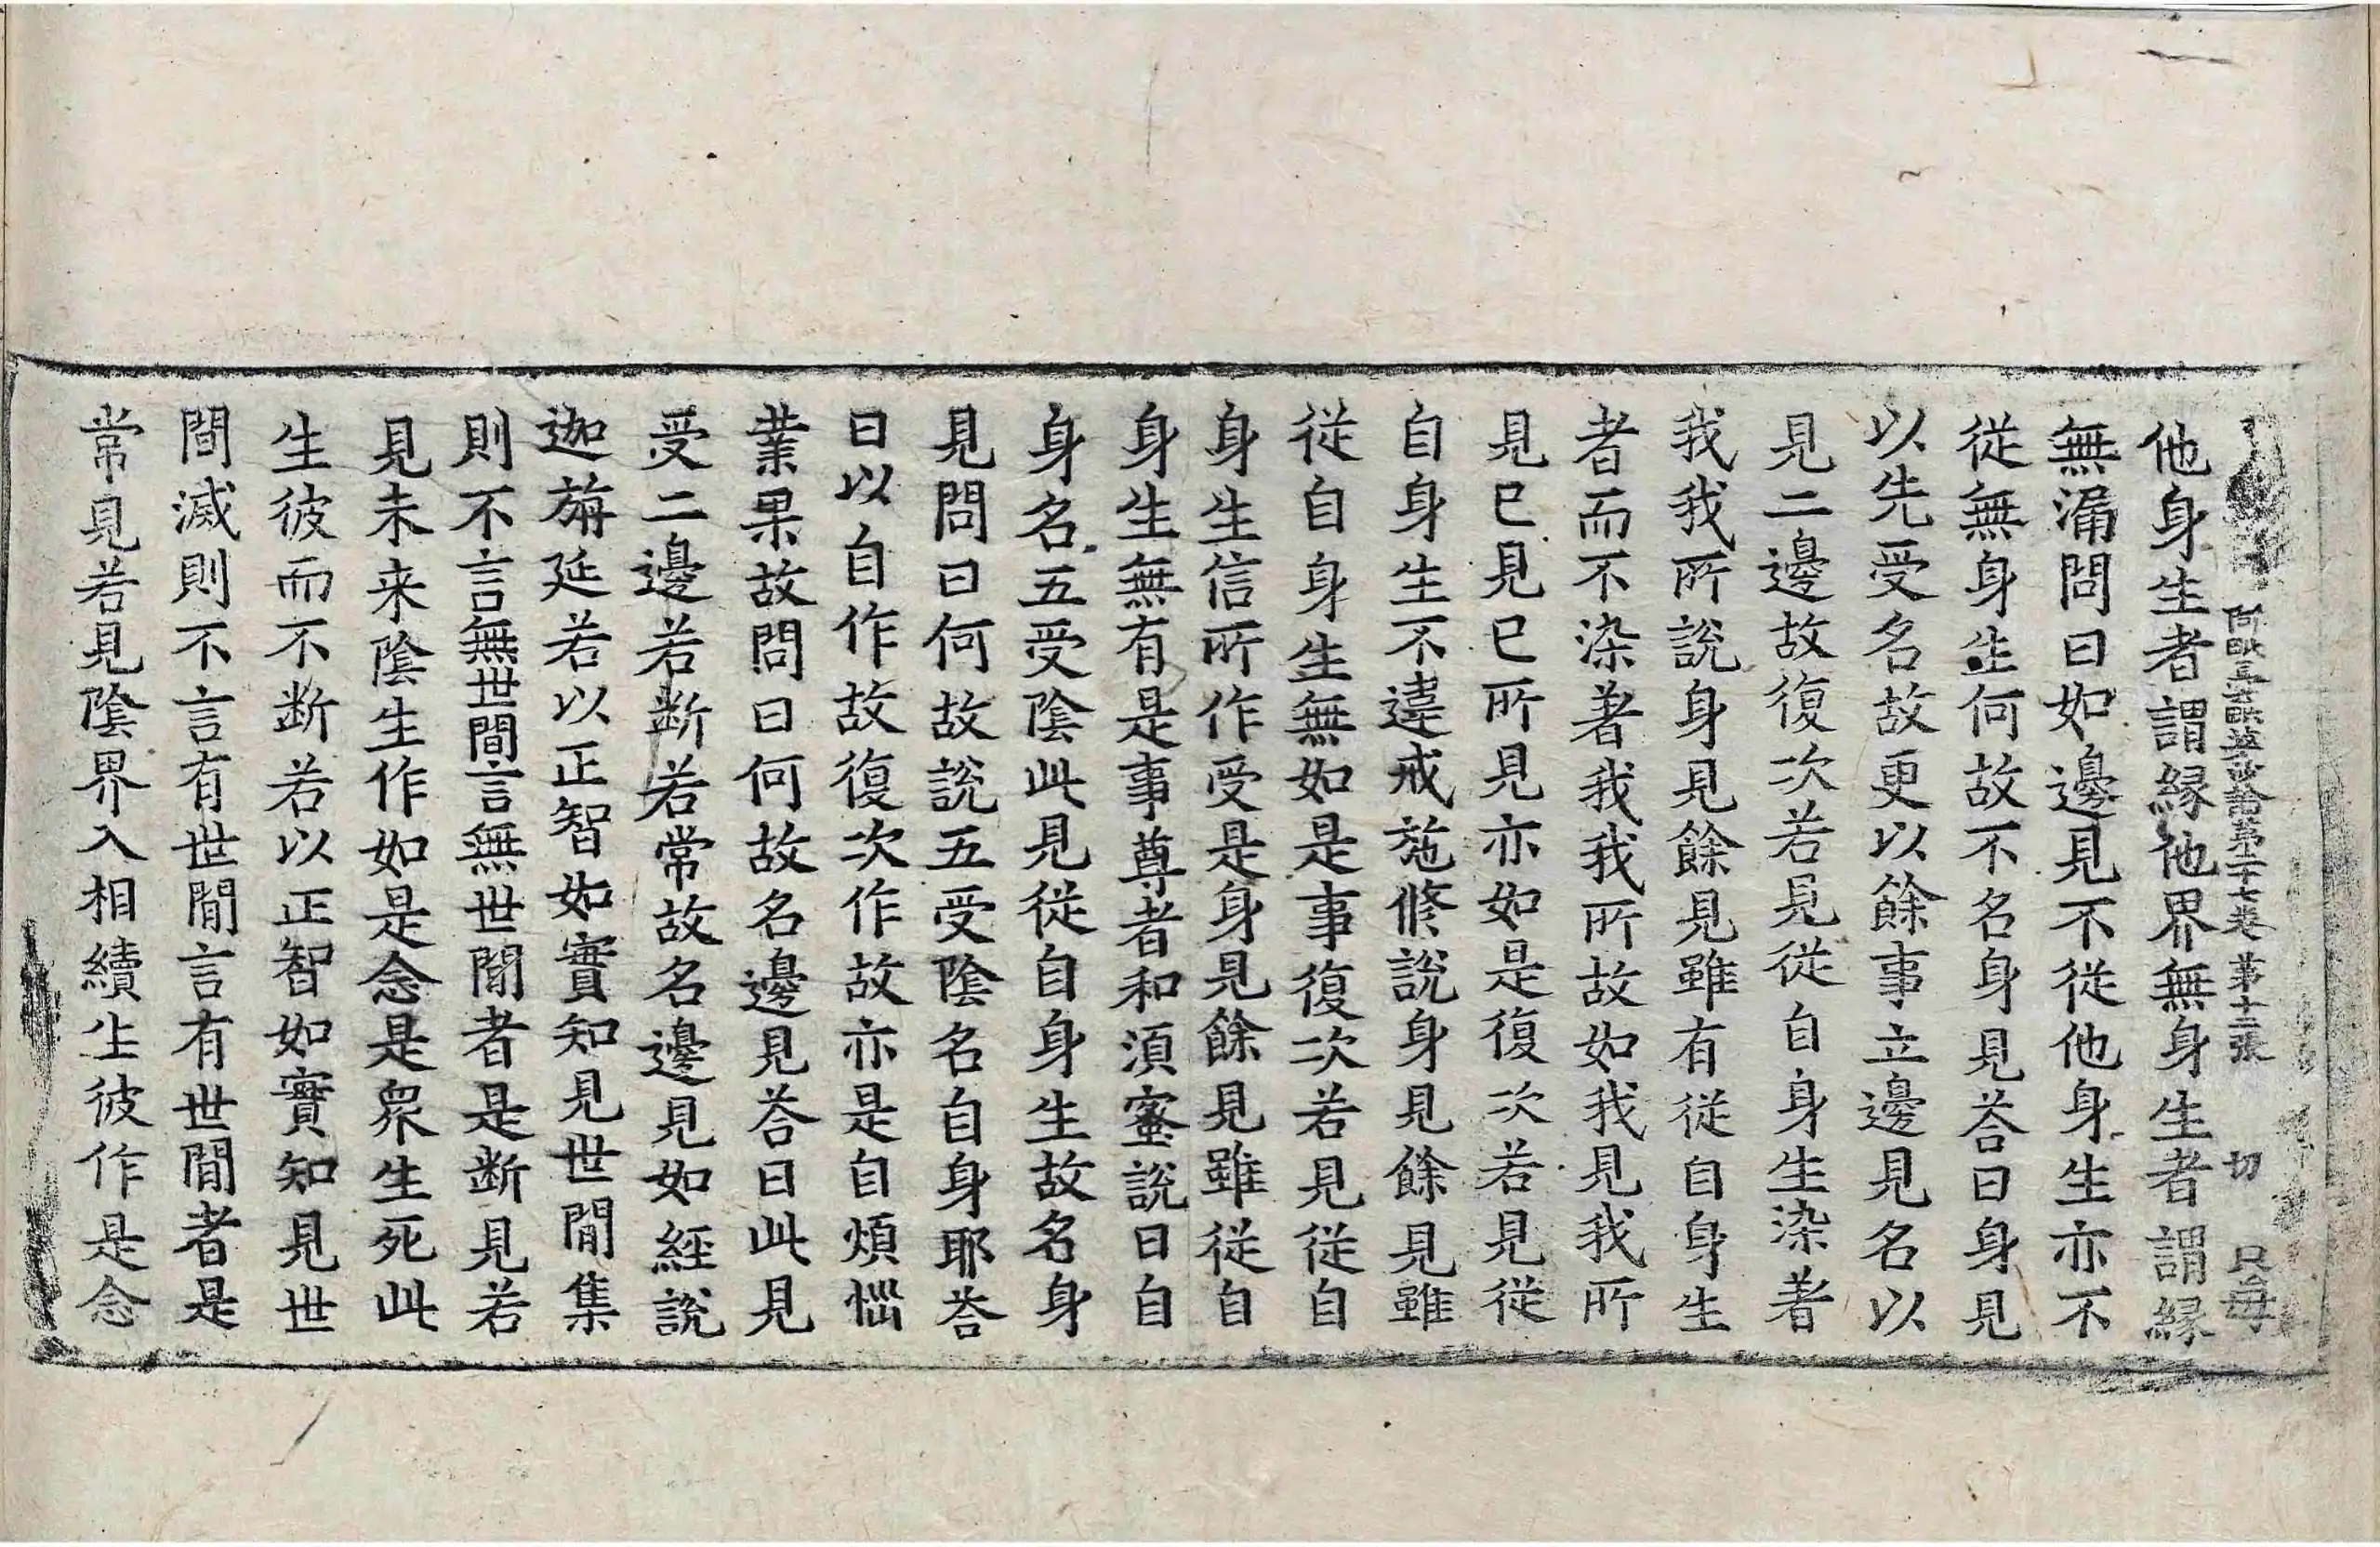 阿毗曇毗婆沙論第二十七卷 第十二張 切 只每
他身生者謂縁他界無身生者謂縁
無漏問曰如邊見不從他身生亦不
從無身生何故不名身見荅曰身見
以先受名故更以餘事立邊見名以
見二邊故復次若見從自身生染著
我我所說身見餘見雖有從自身生
者而不染著我我所故如我見我所
見已見已所見亦如是復次若見從
自身生不違戒施修說身見餘見雖
從自身生無如是事復次若見從自
身生信所作受是身見餘見雖從自
身生無有是事尊者和須蜜說曰自
身名五受陰此見從自身生故名身
見問曰何故說五受陰名自身耶荅
曰以自作故復次作故亦是自煩惱
業果故問曰何故名邊見荅曰此見
受二邊若断若常故名邊見如經說
迦旃延若以正智如實知見世間集
則不言無世間言無世間者是断見若
見未来陰生作如是念是衆生死此
生彼而不断若以正智如實知見世
間滅則不言有世間言有世間者是
常見若見陰界入相續生彼作是念